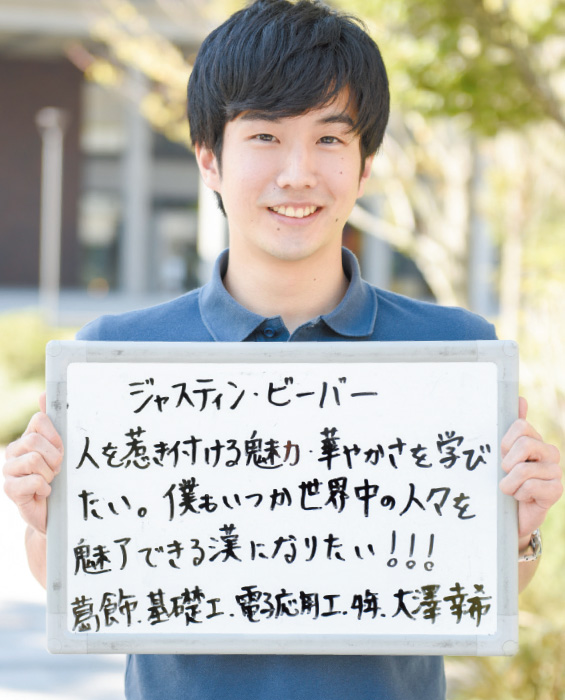 ジャスティン・ビーバー
人を惹き付ける魅力・華やかさを学び
たい。僕もいつか世界中の人々を
魅了できる漢になりたい!!!
葛飾.基礎工.電子応用工.4年.大澤幸希